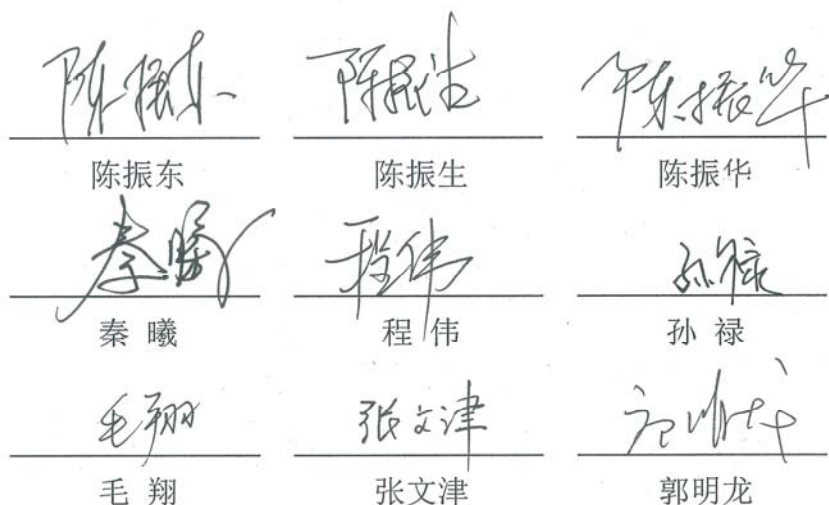 陈振东 陈振生 陈振华
陈振东 陈振生 陈振华
秦曦 程伟 孙禄
秦 曦 程 伟 孙 禄
毛翔 张文津 郭明龙
毛 翔 张文津 郭明龙